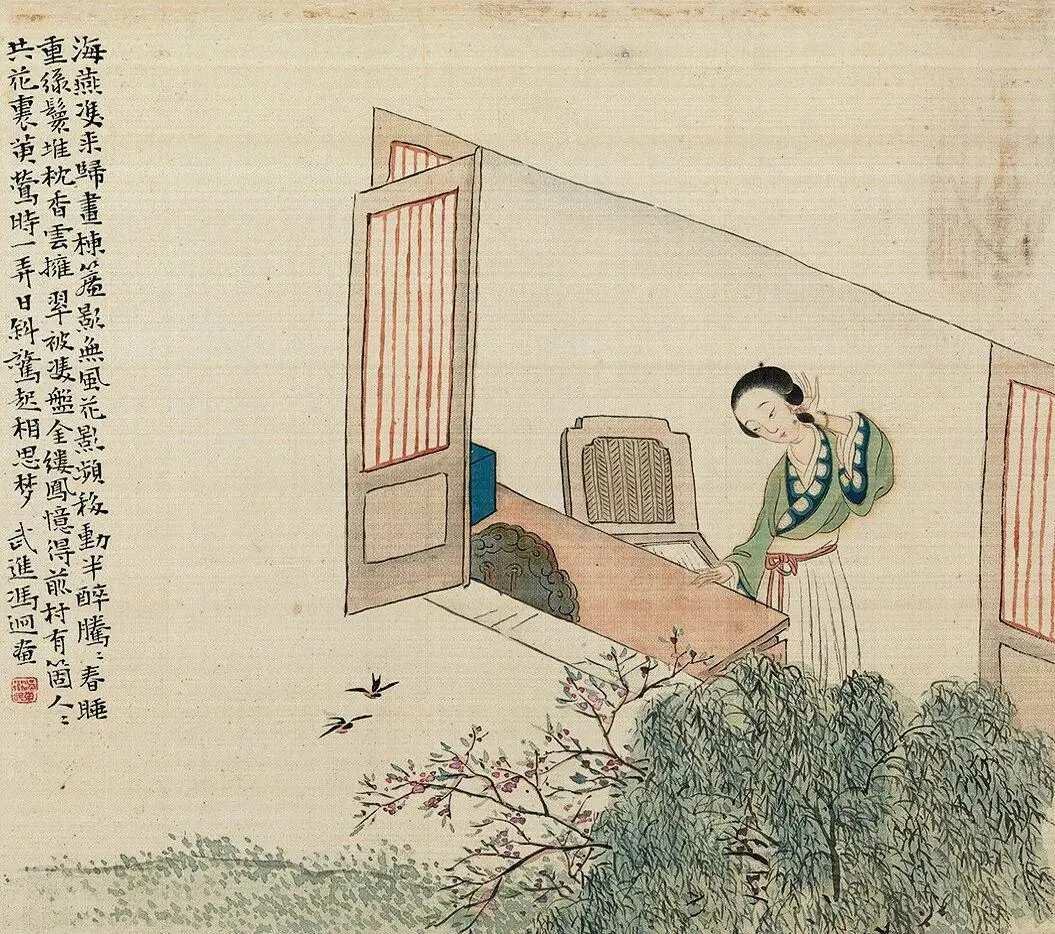 海燕雙来歸畫棟簾影無風花影頻移動半醉騰〻春睡
重綠鬟堆枕香雲擁翠被雙盤金縷鳳憶得前村有箇人〻
共花裏黃鶯時一弄日斜驚起相思梦 武進馮迥畫